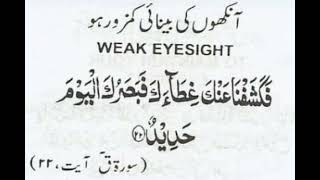 آنکھوں کی بینائی کمزور ہو
WEAK EYESIGHT
فَكَشَفْنَا عَنْكَ غِطَآءَكَ فَبَصَرُكَ الْيَوْمَ
حَدِيْدٌ ﴿۲۲﴾
(سورۃ قٓ آیت، ۲۲)